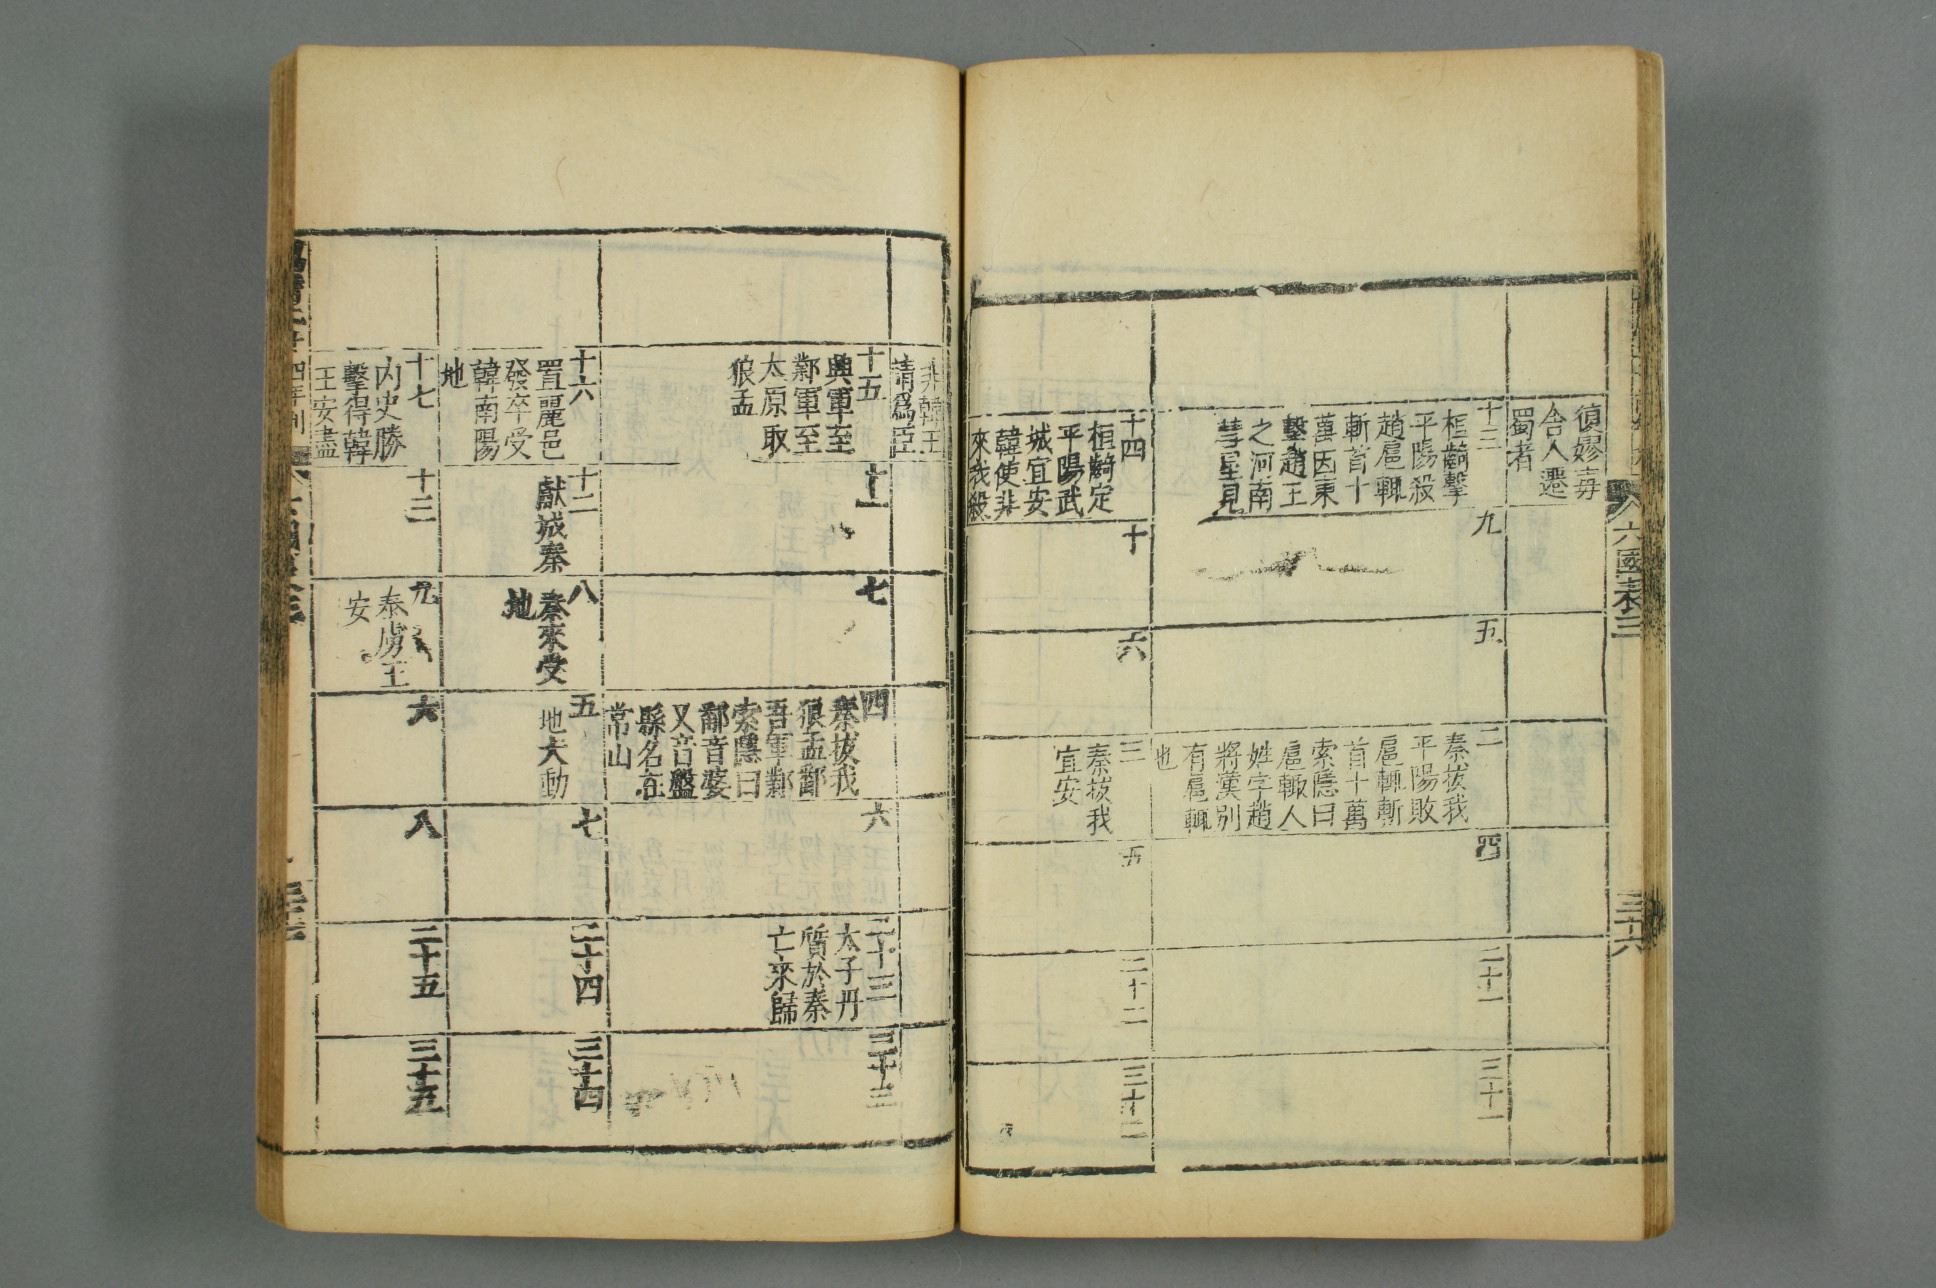 六國表三
三十六
復嫪毐
舍人遷
蜀者
十三
桓齮擊
平陽殺
趙扈輒
斬首十
萬因東
擊趙王
之河南
彗星見
九
五
二
秦拔我
平陽敗
扈輒斬
首十萬
索隱曰
扈輒人
姓字趙
將漢別
有扈輒
也
四
二十一
三十一
十四
桓齮定
平陽武
城宜安
韓使非
來我殺
十
六
三
秦拔我
宜安
五
二十二
三十二
非韓王
請爲臣
十五
興軍至
鄴軍至
太原取
狼孟
十一
七
四
秦拔我
狼孟鄱
吾軍鄴
索隱曰
鄱音婆
又音盤
縣名在
常山
六
二十三
太子丹
質於秦
亡來歸
三十三
十六
置麗邑
發卒受
韓南陽
地
十二
獻城秦
八
秦來受
地
五
地大動
七
二十四
三十四
十七
内史勝
擊得韓
王安盡
十三
九
秦虜王
安
六
八
二十五
三十五
四年刊